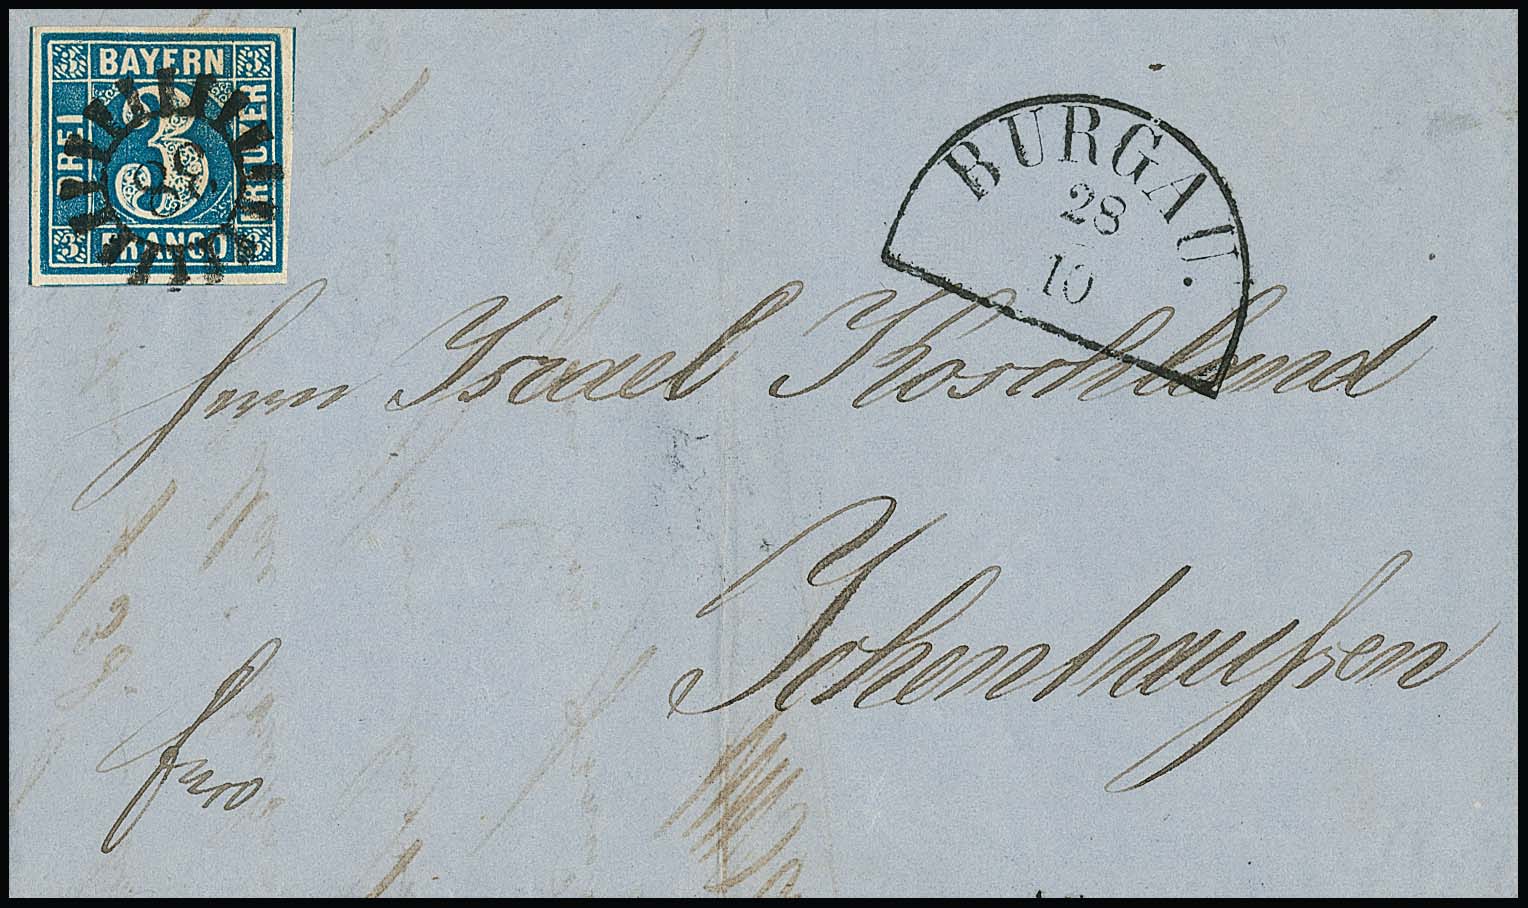 3 BAYERN 3
DREI 3 KREUZER
3 FRANCO 3
BURGAU.
28
10
Herrn Israel Koschland
Ichenhausen
fro